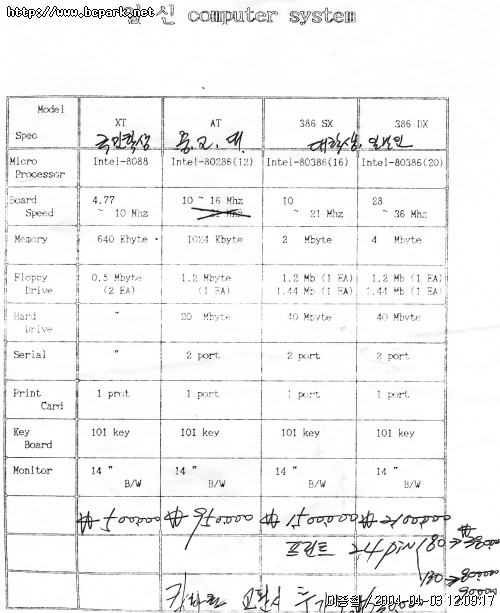 http://www.bcpark.net
신 computer system
Model XT AT 386 SX 386 DX
Spec 국민학생 중.고.대 대학생,일반인
Micro Processor Intel-8088 Intel-80286(12) Intel-80386(16) Intel-80386(20)
Board Speed 4.77 ~ 10 Mhz 10 ~ 16 Mhz 10 ~ 21 Mhz 28 ~ 36 Mhz
Memory 640 Kbyte 1024 Kbyte 2 Mbyte 4 Mbyte
Floppy Drive 0.5 Mbyte (2 EA) 1.2 Mbyte (1 EA) 1.2 Mb (1 EA) 1.44 Mb (1 EA) 1.2 Mb (1 EA) 1.44 Mb (1 EA)
Hard Drive " 20 Mbyte 40 Mbyte 40 Mbyte
Serial " 2 port 2 port 2 port
Print Card 1 prot 1 port 1 port 1 port
Key Board 101 key 101 key 101 key 101 key
Monitor 14 " B/W 14 " B/W 14 " B/W 14 " B/W
프린트 24pin
2004-04-03 12:09:17